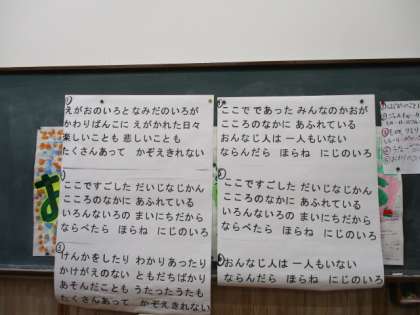 ①
えがおのいろとなみだのいろが
かわりばんこに えがかれた日々
楽しいことも 悲しいことも
たくさんあって かぞえきれない
ここですごした だいじなじかん
こころのなかに あふれている
いろんないろの まいにちだから
ならべたら ほらね にじのいろ
けんかをしたり わかりあったり
かけがえのない ともだちばかり
あそんだことも うたったうたも
たくさんあって かぞえきれない
ここでであった みんなのかおが
こころのなかに あふれている
おんなじ人は 一人もいない
ならんだら ほらね にじのいろ
ここですごした だいじなじかん
こころのなかに あふれている
いろんないろの まいにちだから
ならべたら ほらね にじのいろ
おんなじ人は 一人もいない
ならんだら ほらね にじのいろ